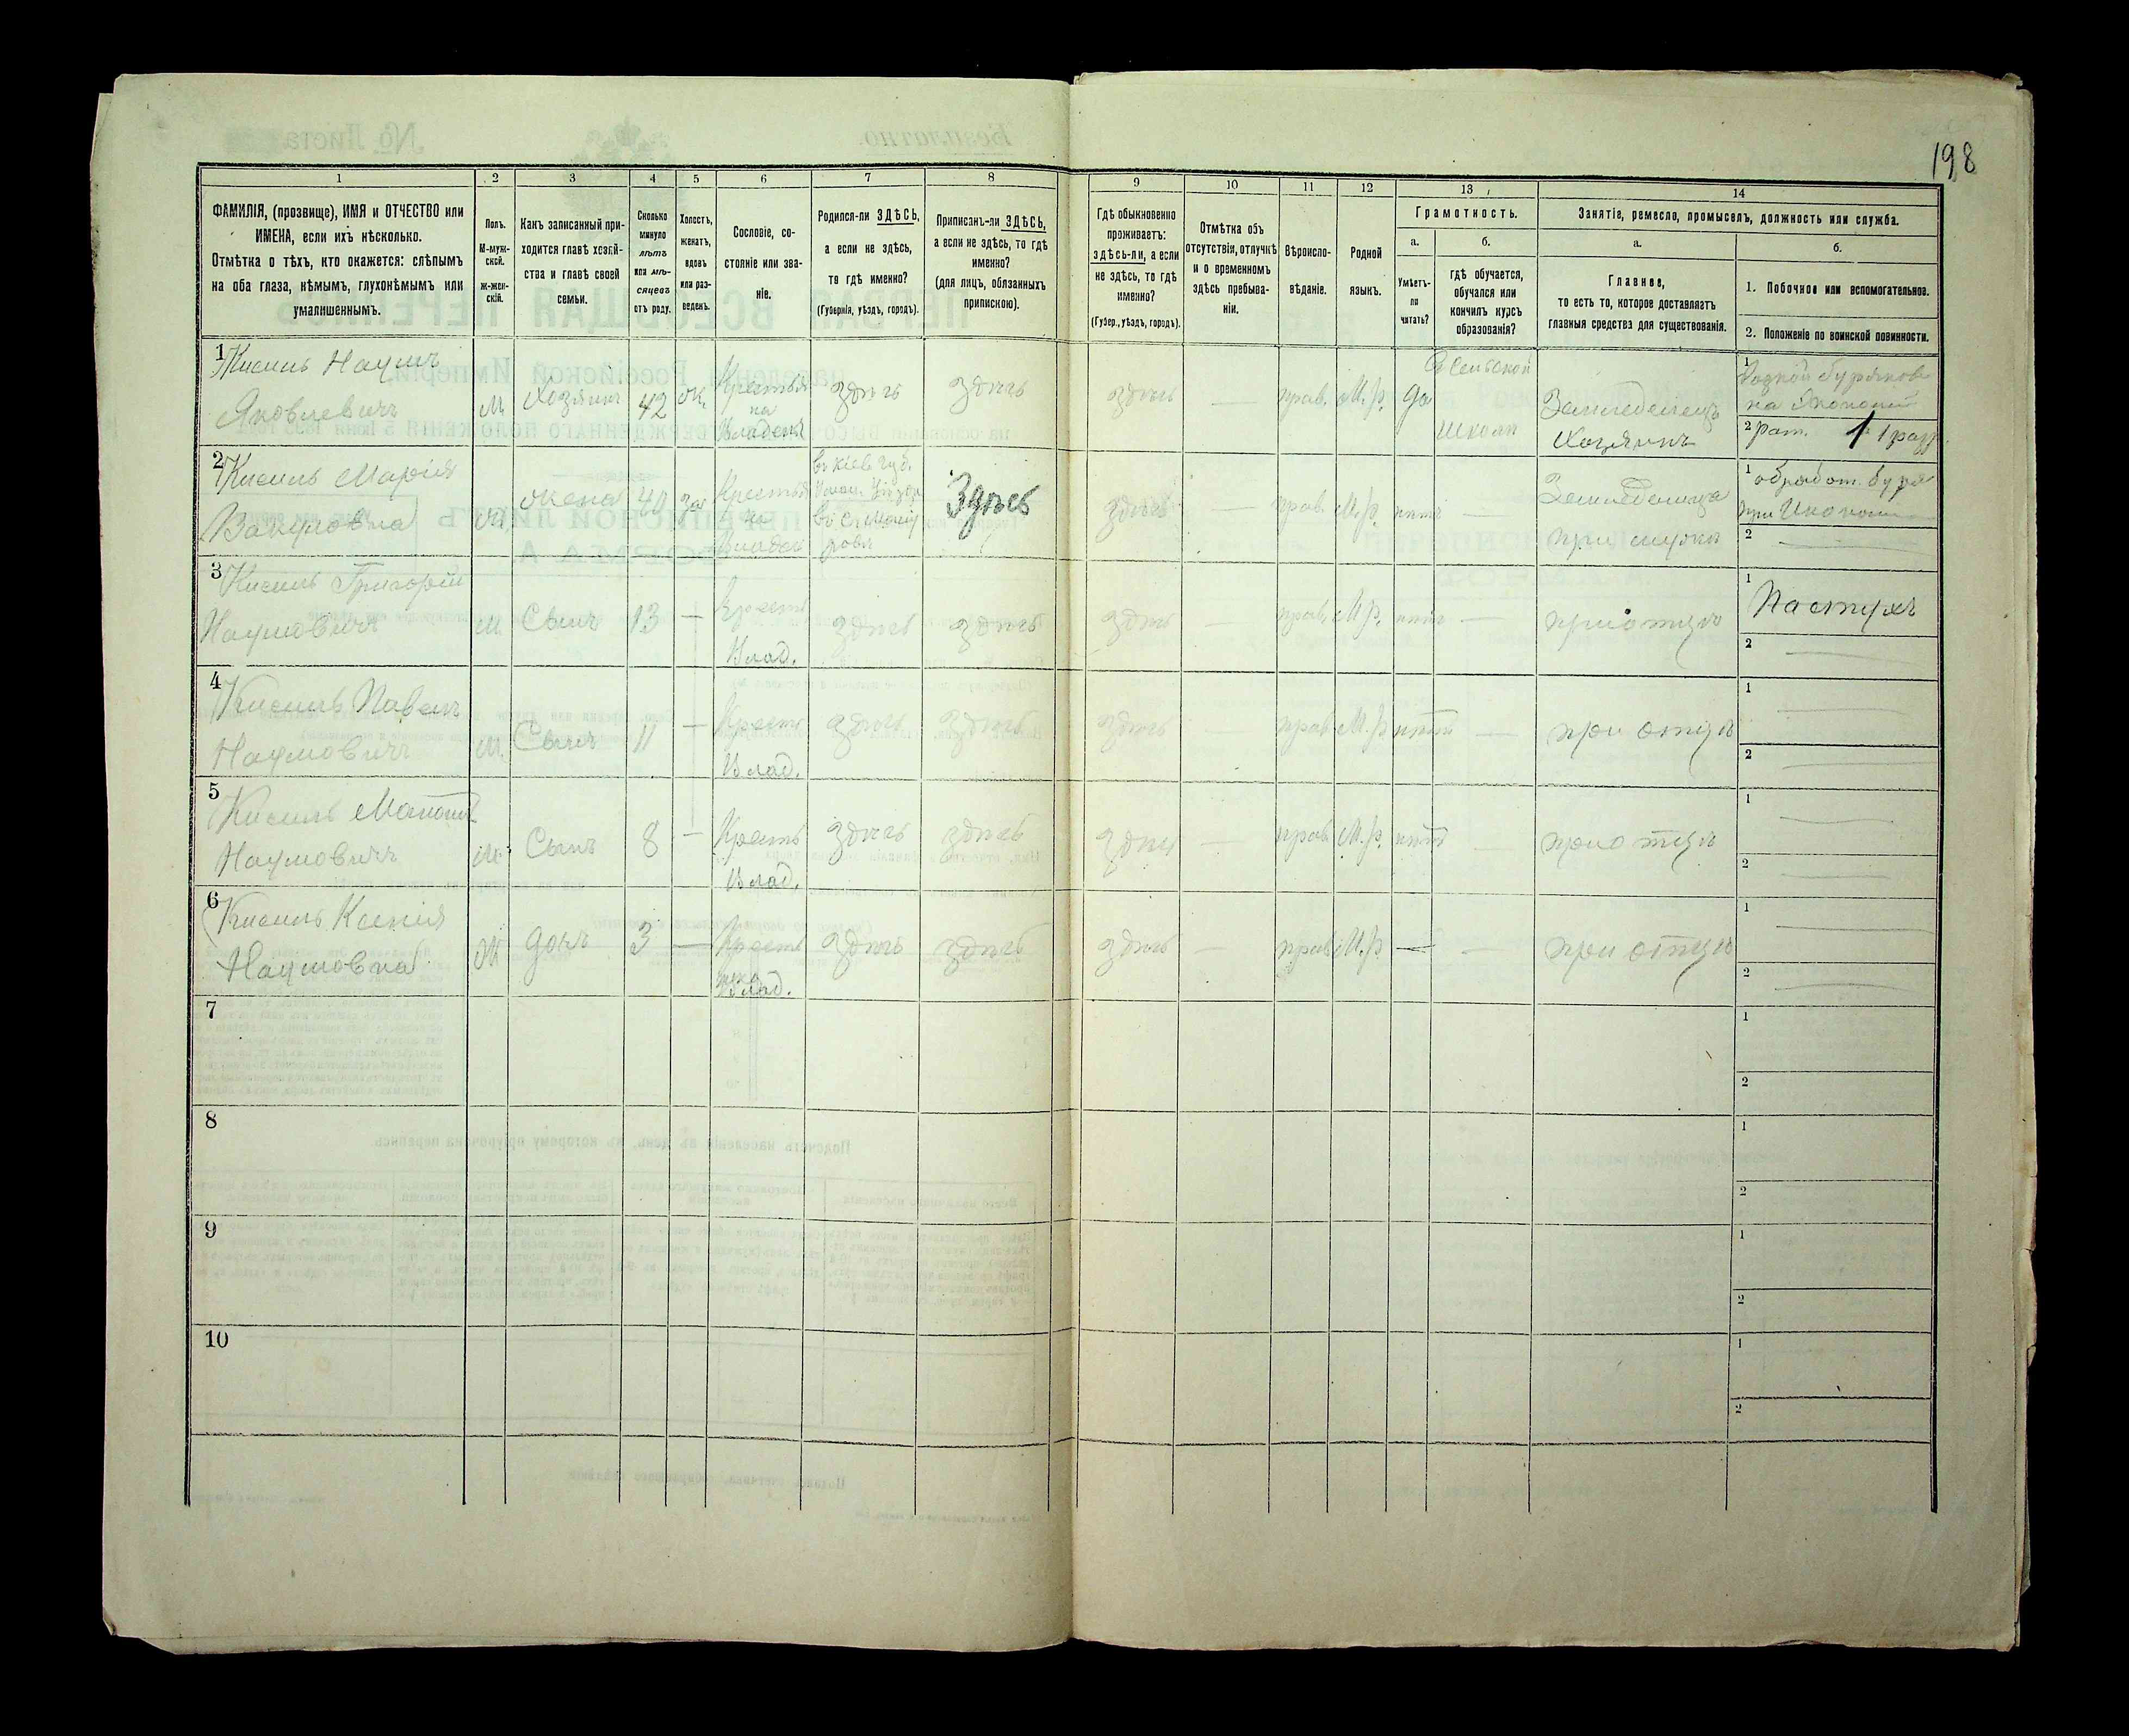 198
1
2
3
4
5
6
7
8
9
10
11
12
13
14
ФАМИЛІЯ, (прозвище), ИМЯ и ОТЧЕСТВО или
ИМЕНА, если ихъ нѣсколько.
Отмѣтка о тѣхъ, кто окажется: слѣпымъ
на оба глаза, нѣмымъ, глухонѣмымъ или
умалишеннымъ.
Полъ.
М-муж-
ской.
ж-жен-
скій.
Какъ записанный при-
ходится главѣ хозяй-
ства и главѣ своей
семьи.
Сколько
минуло
лѣтъ
или мѣ-
сяцевъ
отъ роду.
Холостъ,
женатъ,
вдовъ
или раз-
веденъ.
Сословіе, со-
стояніе или зва-
ніе.
Родился-ли ЗДѢСЬ,
а если не здѣсь,
то гдѣ именно?
(Губернія, уѣздъ, городъ).
Приписанъ-ли ЗДѢСЬ,
а если не здѣсь, то гдѣ
именно?
(для лицъ, обязанныхъ
припискою).
Гдѣ обыкновенно
проживаетъ:
здѣсь-ли, а если
не здѣсь, то гдѣ
именно?
(Губер., уѣздъ, городъ).
Отмѣтка объ
отсутствіи, отлучкѣ
и о временномъ
здѣсь пребыва-
ніи.
Вѣроиспо-
вѣданіе.
Родной
языкъ.
Грамотность.
а.
б.
Умѣетъ-
ли
читать?
гдѣ обучается,
обучался или
кончилъ курсъ
образованія?
Занятіе, ремесло, промыселъ, должность или служба.
а.
б.
Главное,
то есть то, которое доставляетъ
главныя средства для существованія.
1. Побочное или вспомогательное.
2. Положеніе по воинской повинности.
1 Кисиль Наумъ
Яковлевичъ
М.
Хозяинъ
42
ж.
Крестья
на
Владен
здѣсь
здѣсь
здѣсь
—
прав.
М.р.
да
В Сельской
школи
Земледелецъ
Хозяинъ
1
на Экономіи
2 рат. 1 1 разр.
2 Кисиль Марія
жена
40
за
Крестья
въ Кіев губ.
Здѣсь
здѣсь
—
прав.
М.р.
нѣтъ
—
Земледелица
при мужи
1 обработ. буря
при Економ
2
3 Кисиль Григорій
Наумовичъ
М.
Сынъ
13
—
Крестъ
Влад.
здѣсь
здѣсь
здѣсь
—
прав.
М.р.
нѣтъ
—
при отцу
1
Пастухъ
2
4 Кисиль Павелъ
Наумовичъ
М.
Сынъ
11
—
Крестъ
Влад.
здѣсь
здѣсь
здѣсь
—
прав.
М.р.
нѣтъ
—
при отцѣ
1
2
5
Кисиль
Наумовичъ
М.
Сынъ
8
—
Крестъ
Влад.
здѣсь
здѣсь
здѣсь
—
прав.
М.р.
нѣтъ
—
при отцѣ
1
2
6 Кисиль Ксенія
Наумовна
Ж
дочь
3
—
Крестъ
Влад.
здѣсь
здѣсь
здѣсь
—
прав.
М.р.
—
—
при отцѣ
1
2
7
1
2
8
1
2
9
1
2
10
1
2